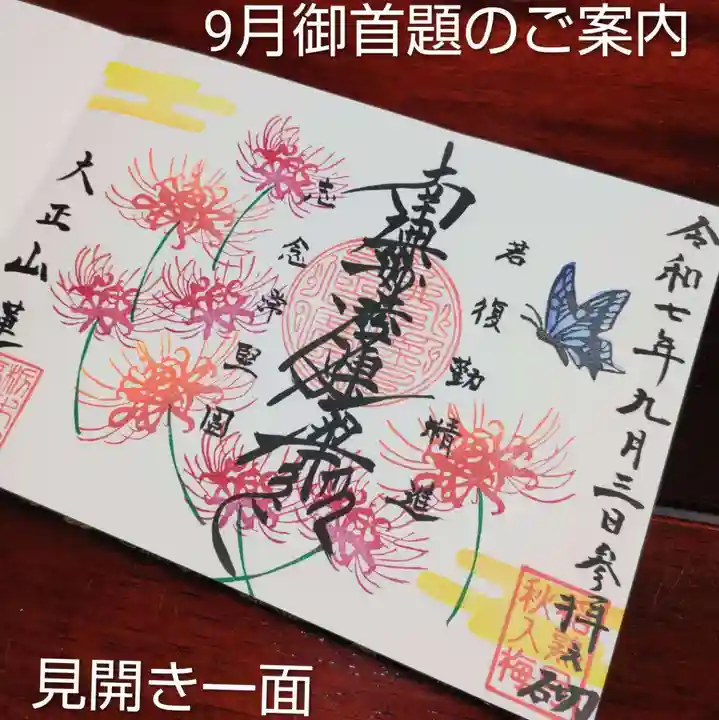 9月御首題のご案内
令和七年九月三日参拝
若復勤精進
南無妙法蓮華経
志念常堅固
大正山
秋入梅
見開き一面